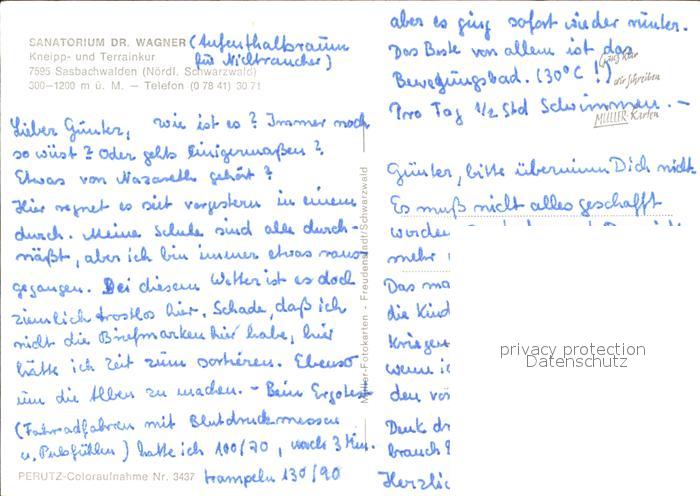 SANATORIUM DR. WAGNER (Aufenthaltsraum
für Nichtraucher)
Kneipp- und Terrainkur
7595 Sasbachwalden (Nördl. Schwarzwald)
300–1200 m ü. M. — Telefon (0 78 41) 30 71
Lieber Günter, wie ist es? Immer noch
so wüst? Oder gehts einigermaßen?
Etwas von Nazareth gehört?
Hier regnet es seit vorgestern in einem
durch. Meine Schuhe sind alle durch-
näßt, aber ich bin immer etwas raus-
gegangen. Bei diesem Wetter ist es doch
ziemlich trostlos hier. Schade, daß ich
nicht die Briefmarken hier habe, hier
hätte ich Zeit zum sortieren. Ebenso
um die Alben zu machen. – Beim Ergotest
(Fahrradfahren mit Blutdruckmessen
u. Pulsfühlen) hatte ich 100/70, nach 3 Min.
trampeln 130/90
PERUTZ-Coloraufnahme Nr. 3437
Müller-Fotokarten - Freudenstadt/Schwarzwald
aber es ging sofort wieder runter.
Das Beste von allem ist das
Bewegungsbad. (30°C!)
Pro Tag 1/2 Std Schwimmen. –
Ganz klar
wir schreiben
MÜLLER-Karten
Günter, bitte übernimm Dich nicht
Es muß nicht alles geschafft
worden
mehr
Das ma
die Kind
Kriegen
wenn ic
den vo
Denk dr
brauch
Herzlic
privacy protection
Datenschutz